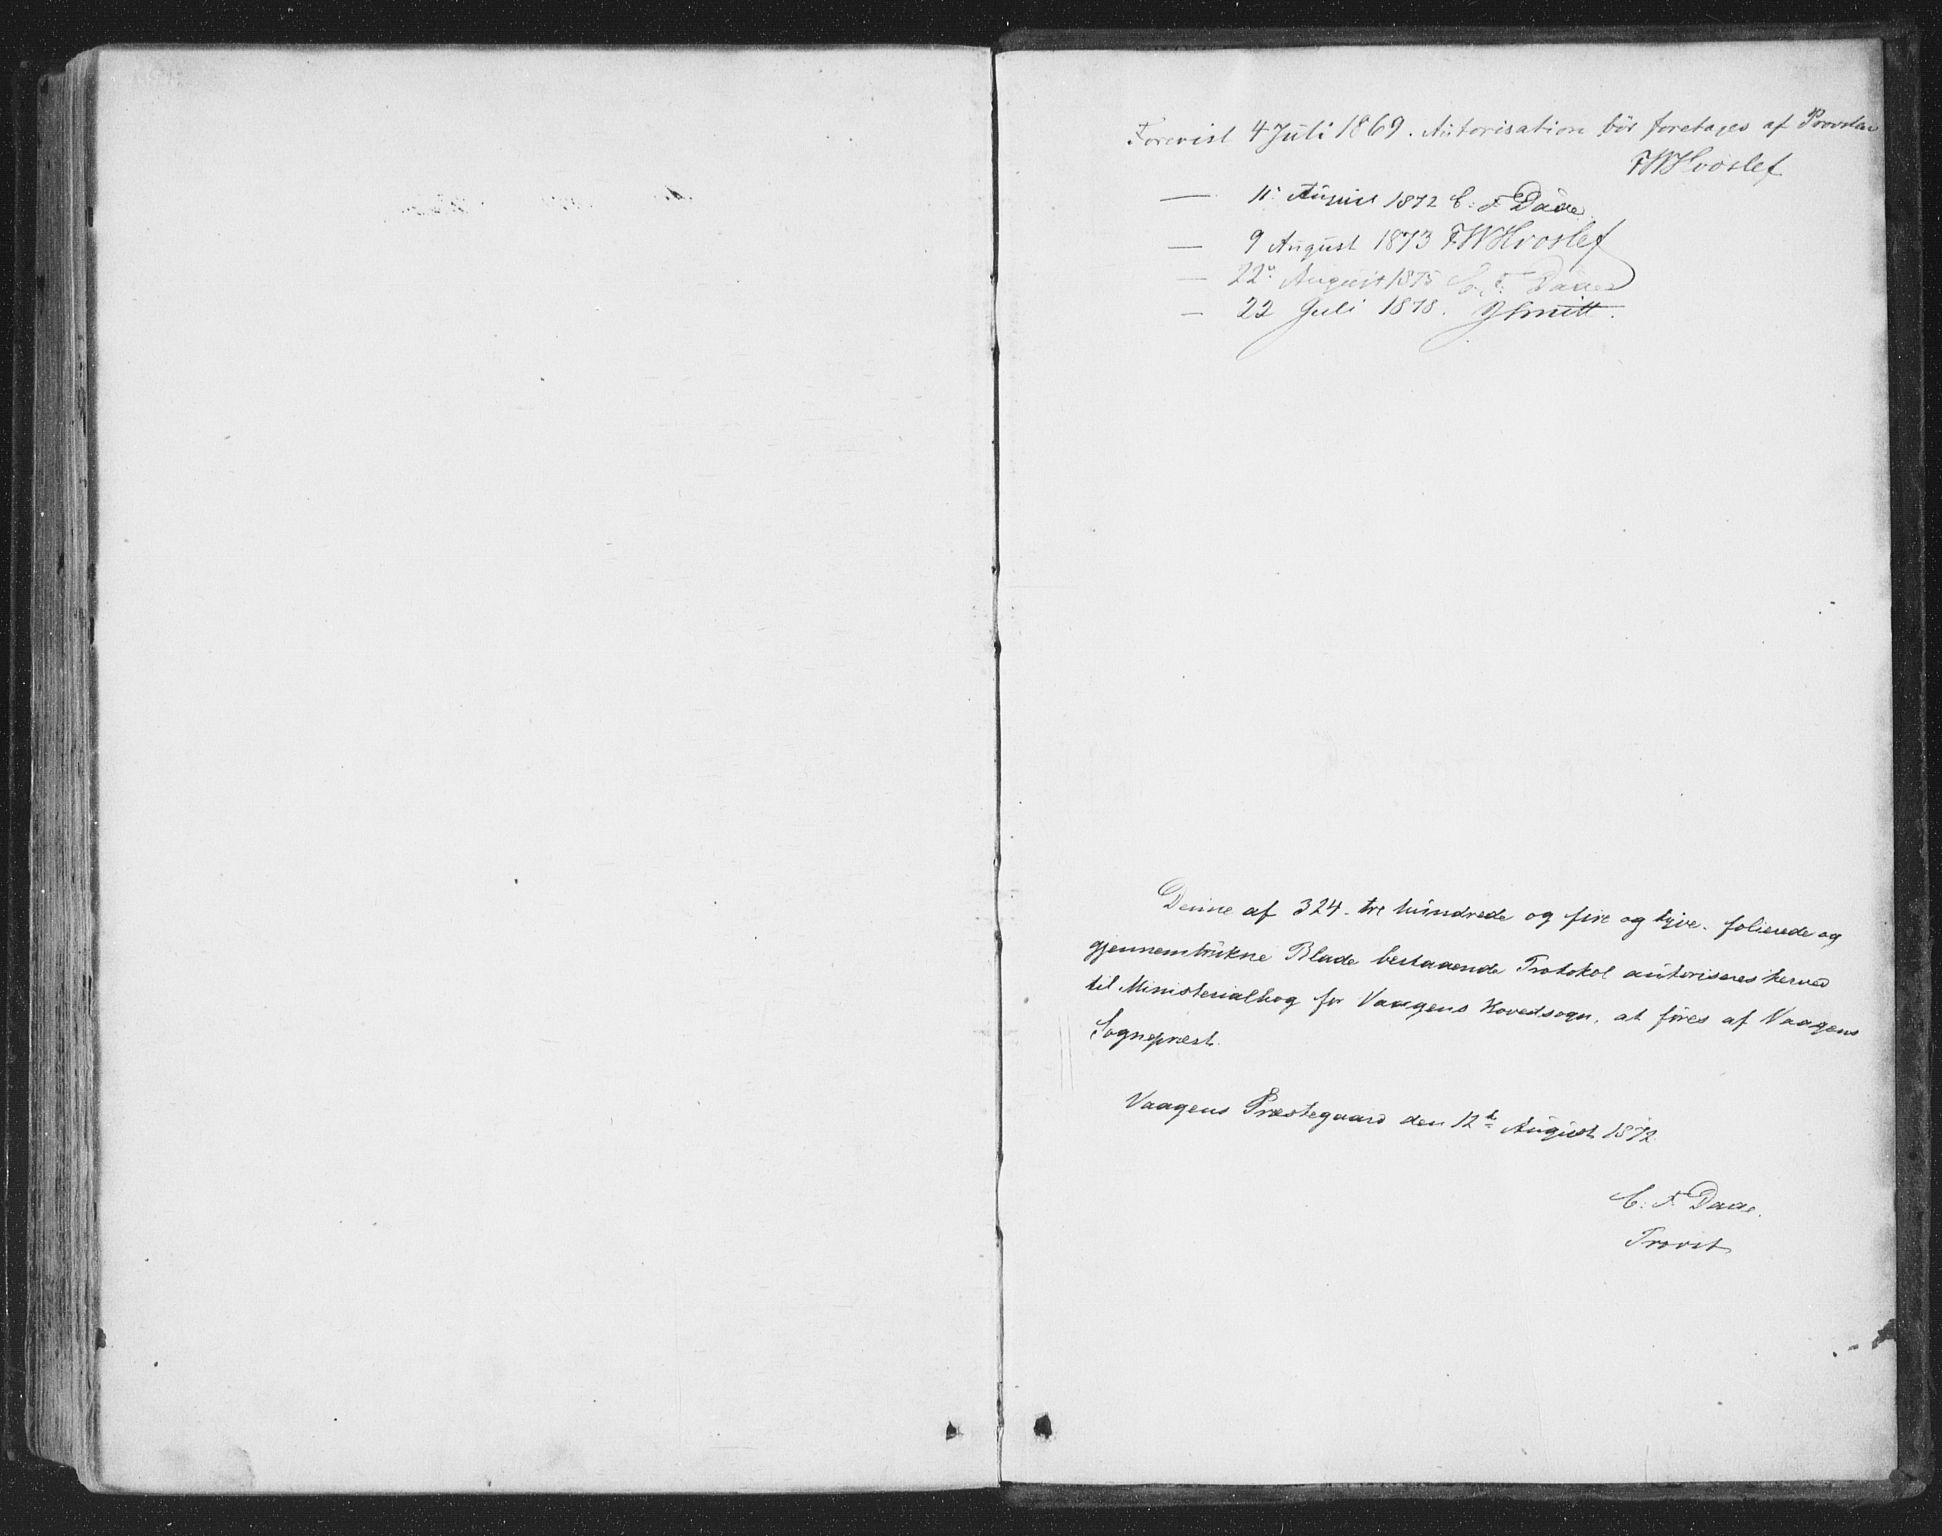 Forevist 4 Juli 1869. Autorisation bör foretages af Provsten
FWHvoslef
— 11 August 1872 C. F Daae.
— 9 August 1873 FWHvoslef
— 22 August 1875 C. F. Daae
— 22 Juli 1878. JSmitt.
Denne af 324 - tre hundrede og fire og tyve - folierede og
gjennemtrukne Blade bestaaende Protokol autoriseres herved
til Ministerialbog for Vaagens Hovedsogn, at føres af Vaagens
Sognepræst.
Vaagens Præstegaard den 12te August 1872
C. F. Daae.
Provst